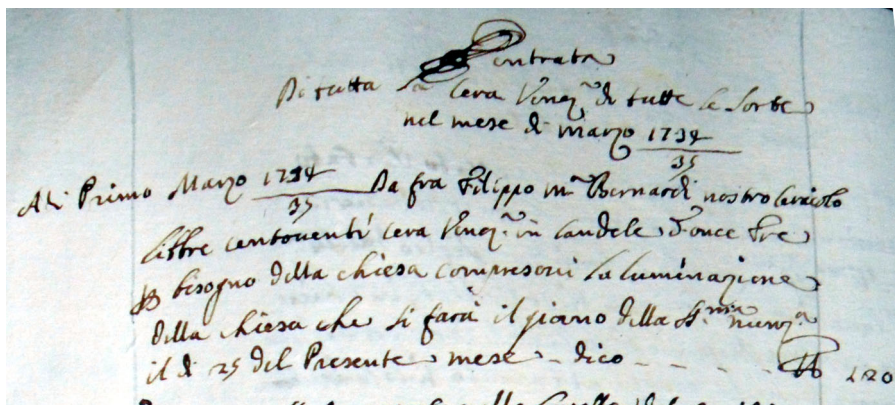 Entrata
Di tutta la Cera Venez.ª di tutte le Sorte
nel mese di Marzo 1734
35
Adi Primo Marzo 1734 Da fra Filippo M.ª Bernardi nostro Ceraiolo
35
libbre centoventi cera Venez.ª in candele d'once tre
bisogno della chiesa compresovi la luminazione
della chiesa che si farà il giorno della SS.ma Nunz.ª
il di 25 del Presente mese - dico - - - - 120